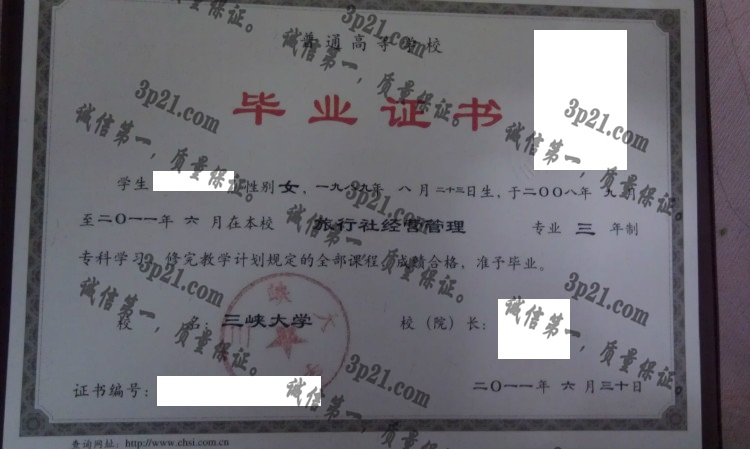 普通高等学校
毕业证书
学生 性别女，一九八九年 八 月 二十三日生，于二〇〇八年 九月
至二〇一一年 六 月在本校 旅行社经营管理 专业 三 年制
专科学习，修完教学计划规定的全部课程，成绩合格，准予毕业。
校 名：三峡大学 校（院）长：
证书编号： 二〇一一年 六 月三十日
查询网址：http://www.chsi.com.cn
3p21.com
诚信第一，质量保证。
3p21.com
诚信第一，质量保证。
3p21.com
诚信第一，质量保证。
3p21.com
诚信第一，质量保证。
3p21.com
诚信第一，质量保证。
3p21.com
诚信第一，质量保证。
3p21.com
诚信第一，质量保证。
3p21.com
诚信第一，质量保证。